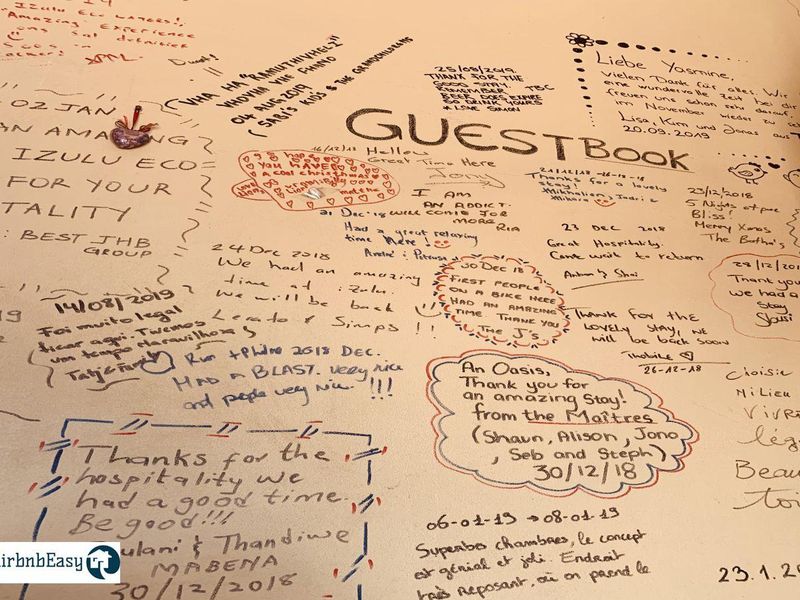 Amazing Experience
VHA HA "RAMUTHIVHELI"
VHOVHA VHE FHANO
04 AUG 2019
SABI'S KIDS & THE GRANDCHILDREN
25/08/2019.
THANK FOR THE
GOOD STAY.
REMEMBER TBC
BEER DOES EXPIRE
SO DRINK YOURS
& LOVE SIMON
Liebe Yasmine,
vielen Dank für alles. Wir
eine wundervolle Zeit bei dir
freuen uns schon sehr darauf,
im November wieder zu
Lisa, Kim und Jonas aus
20.09.2019
GUESTBOOK
02 JAN
AN AMAZING
IZULU ECO
FOR YOUR
TALITY
: BEST JHB
GROUP
16/12/18
Hellow
Great Time Here
Tony
YOU HAVE
a cool christmas
I AM
AN ADDICT.
WILL COME FOR
MORE
RIA
21 Dec '18
Had a great relaxing
time here!
Thanks for a lovely
stay!
23/12/2018
5 Nights of pure
Bliss!
Merry Xmas
The Botha's
23 DEC 2018
Great Hospitality.
Cant wait to return
24 Dec 2018
We had an amazing
time at izulu.
We will be back
Lerato & Simps !!
30 Dec 18
FIRST PEOPLE
ON A BIKE HERE
HAD AN AMAZING
TIME THANK YOU
THE J's
28/12/
Thank you
we had a
stay
THANK FOR THE
LOVELY STAY, WE
will be back soon
26-12-18
14/08/2019
Foi muito legal
ficar aqui. Tivemos
um tempo maravilhoso
2018 DEC.
HAD A BLAST. very nice
and people very nice. !!!
An Oasis,
Thank you for
an amazing stay!
from the Maîtres
(Shaun, Alison, Jono,
Seb and Steph)
30/12/18
Choisir
Milieu
Vivre
Beau
toi
Thanks for the
hospitality we
had a good time.
Be good!!!
ulani & Thandiwe
MABENA
30/12/2018
06-01-19 → 08-01-19
Superbes chambres, le concept
est génial et joli. Endroit
très reposant, où on prend le
23.1.20
airbnbEasy